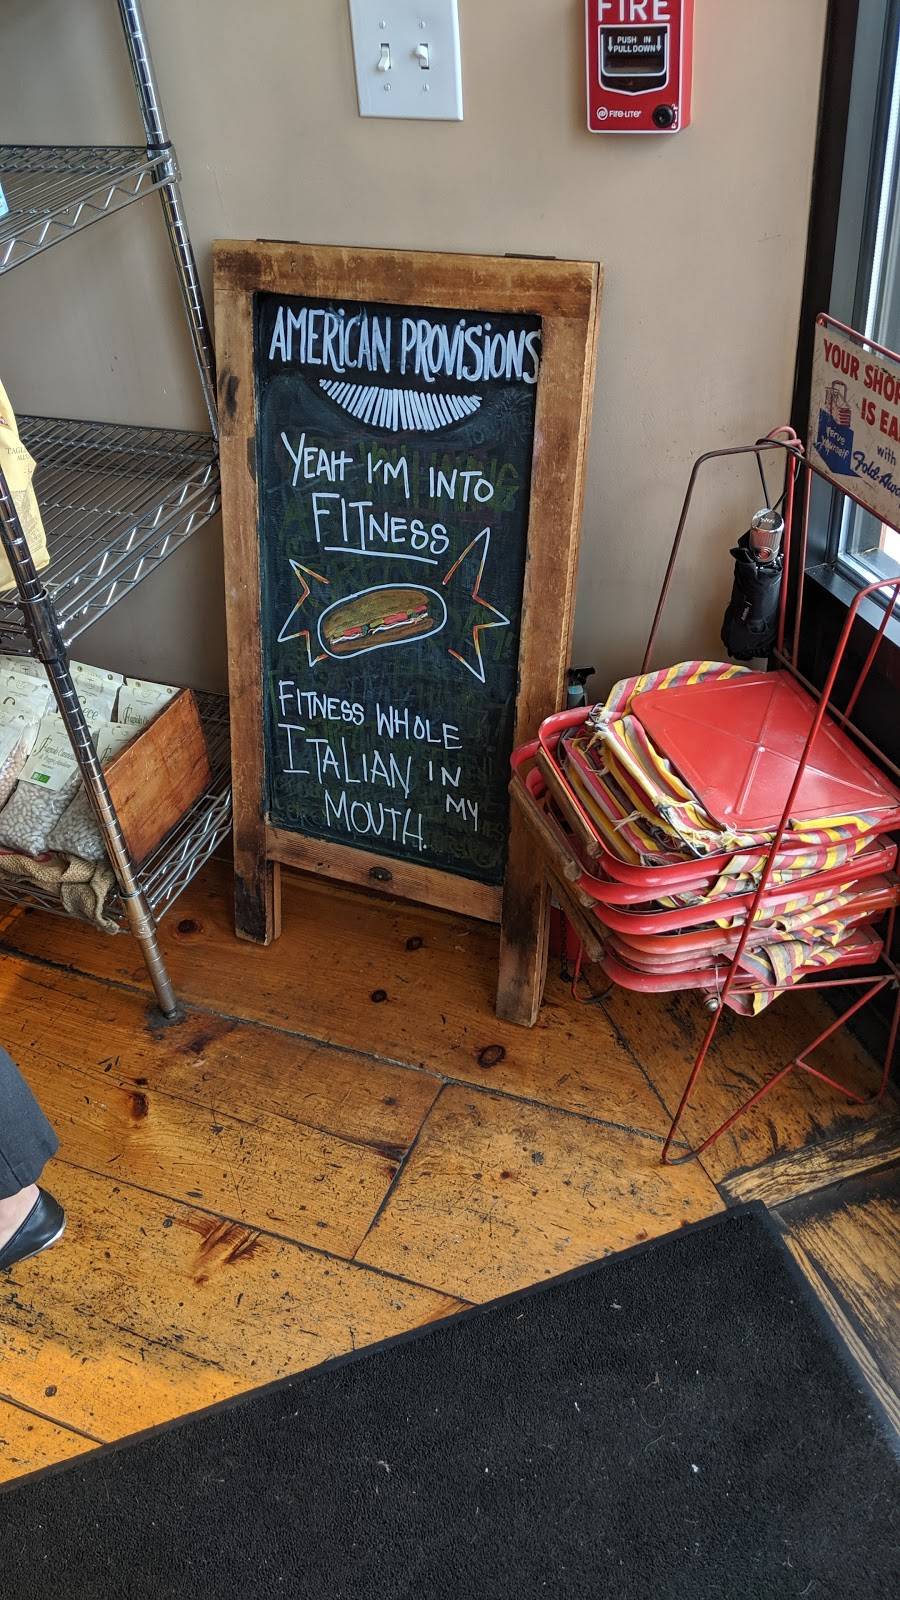 FIRE
PUSH IN
PULL DOWN
FIRE-LITE
AMERICAN PROVISIONS
YEAH I'M INTO
FITNESS
FITNESS WHOLE
ITALIAN IN
MY
MOUTH.
YOUR SHOP
IS EA
with
Fold-Away
Serve
Yourself